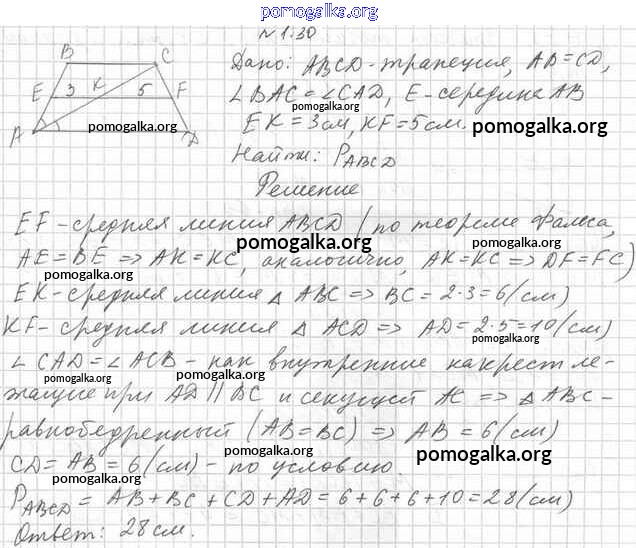 pomogalka.org
№ 1.30
B C
E 3 K 5 F
A D
pomogalka.org
Дано: ABCD - трапеция, AB = CD,
∠BAC = ∠CAD, E - середина AB
EK = 3 см, KF = 5 см.
pomogalka.org
Найти: P ABCD
Решение
EF - средняя линия ABCD (по теореме Фалеса,
pomogalka.org
pomogalka.org
AE = BE => AK = KC, аналогично, AK = KC => DF = FC)
pomogalka.org
EK - средняя линия △ ABC => BC = 2·3 = 6 (см)
pomogalka.org
KF - средняя линия △ ACD => AD = 2·5 = 10 (см)
∠ CAD = ∠ ACB - как внутренние накрест ле-
pomogalka.org
pomogalka.org
жащие при AD || BC и секущей AC => △ ABC -
pomogalka.org
равнобедренный (AB = BC) => AB = 6 (см)
CD = AB = 6 (см) - по условию.
pomogalka.org
pomogalka.org
P ABCD = AB + BC + CD + AD = 6 + 6 + 6 + 10 = 28 (см)
Ответ: 28 см.
pomogalka.org